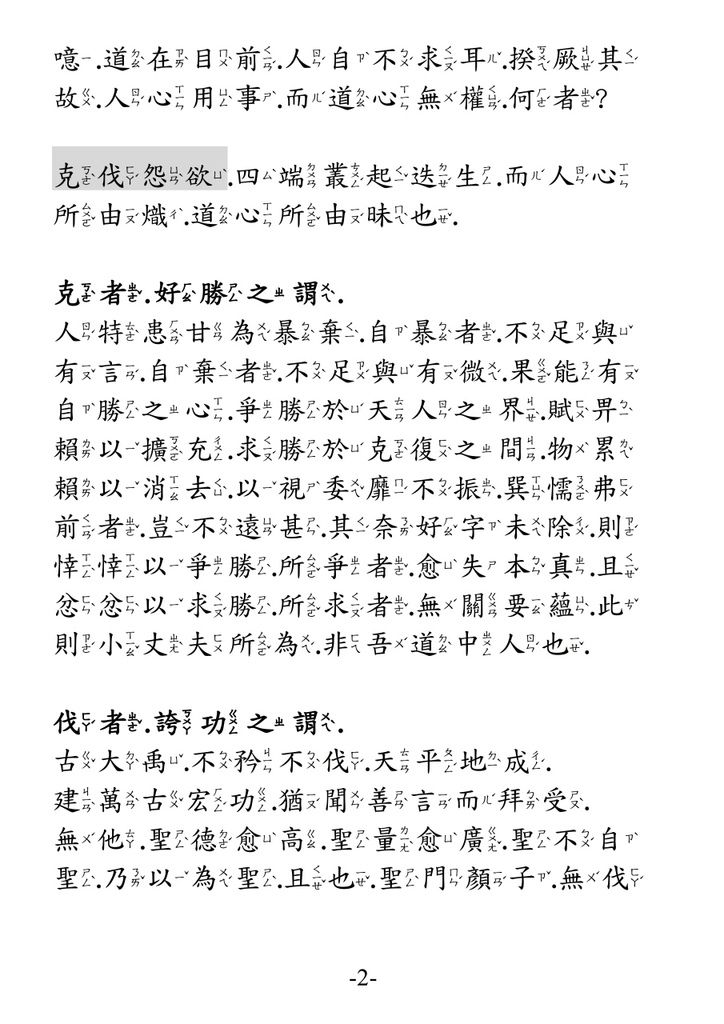 噫.道在目前.人自不求耳.揆厥其
故.人心用事.而道心無權.何者?
克伐怨欲.四端叢起迭生.而人心
所由熾.道心所由昧也.
克者.好勝之謂.
人特患甘為暴棄.自暴者.不足與
有言.自棄者.不足與有微.果能有
自勝之心.爭勝於天人之界.賦畀
賴以擴充.求勝於克復之間.物累
賴以消去.以視委靡不振.巽懦弗
前者.豈不遠甚.其奈好字未除.則
悻悻以爭勝.所爭者.愈失本真.且
忿忿以求勝.所求者.無關要蘊.此
則小丈夫所為.非吾道中人也.
伐者.誇功之謂.
古大禹.不矜不伐.天平地成.
建萬古宏功.猶聞善言而拜受.
無他.聖德愈高.聖量愈廣.聖不自
聖.乃以為聖.且也.聖門顏子.無伐
-2-